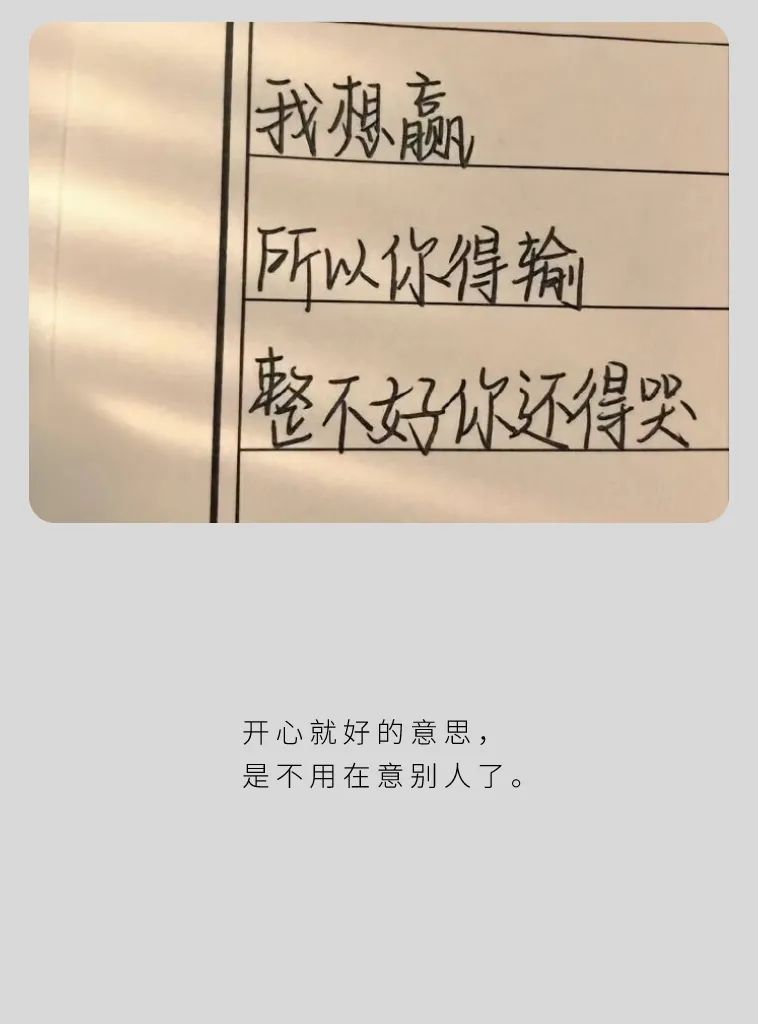 我想赢
所以你得输
整不好你还得哭
开心就好的意思，
是不用在意别人了。